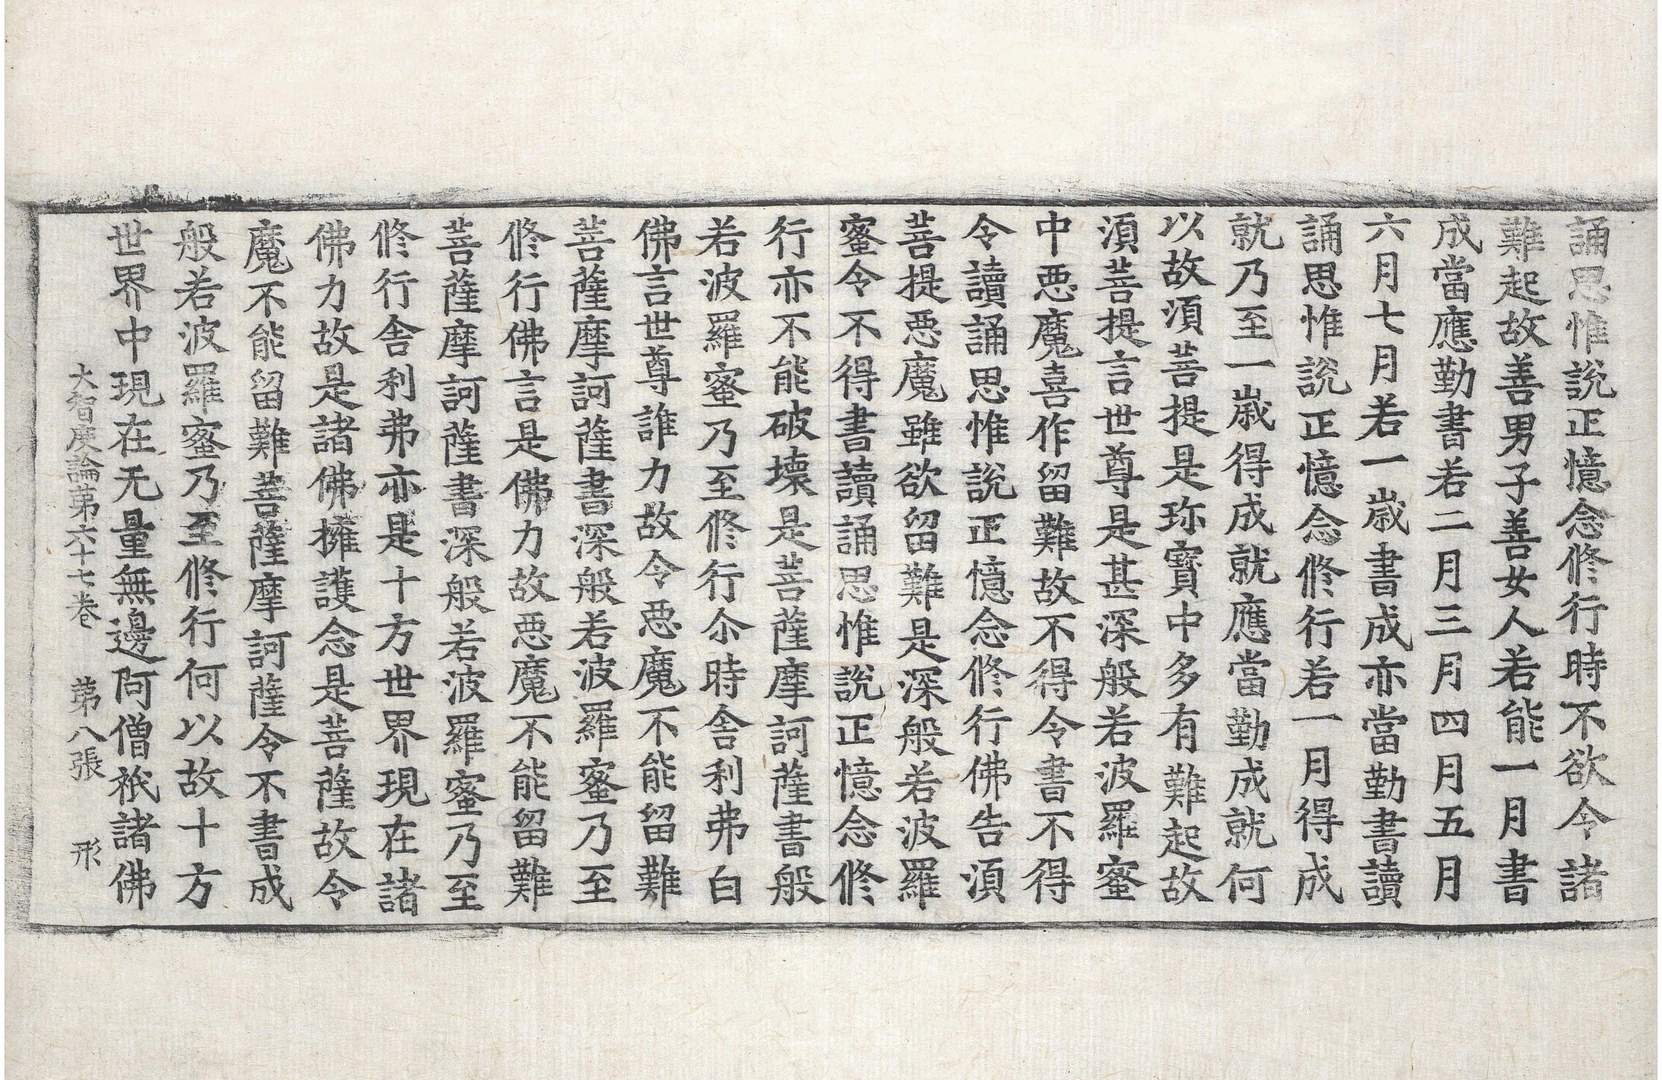 誦思惟說正憶念修行時不欲令諸
難起故善男子善女人若能一月書
成當應勤書若二月三月四月五月
六月七月若一歲書成亦當勤書讀
誦思惟說正憶念修行若一月得成
就乃至一歲得成就應當勤成就何
以故須菩提是珎寶中多有難起故
須菩提言世尊是甚深般若波羅蜜
中悪魔喜作留難故不得令書不得
令讀誦思惟說正憶念修行佛告須
菩提悪魔雖欲留難是深般若波羅
蜜令不得書讀誦思惟說正憶念修
行亦不能破壞是菩薩摩訶薩書般
若波羅蜜乃至修行尒時舍利弗白
佛言世尊誰力故令悪魔不能留難
菩薩摩訶薩書深般若波羅蜜乃至
修行佛言是佛力故悪魔不能留難
菩薩摩訶薩書深般若波羅蜜乃至
修行舍利弗亦是十方世界現在諸
佛力故是諸佛擁護念是菩薩故令
魔不能留難菩薩摩訶薩令不書成
般若波羅蜜乃至修行何以故十方
世界中現在无量無邊阿僧祇諸佛
大智度論第六十七卷　第八張　形